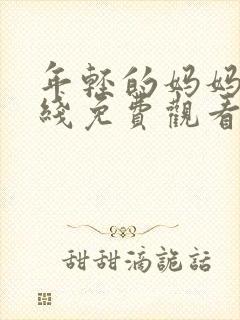 年輕的妈妈
綫免費觀看
甜甜滴詭話